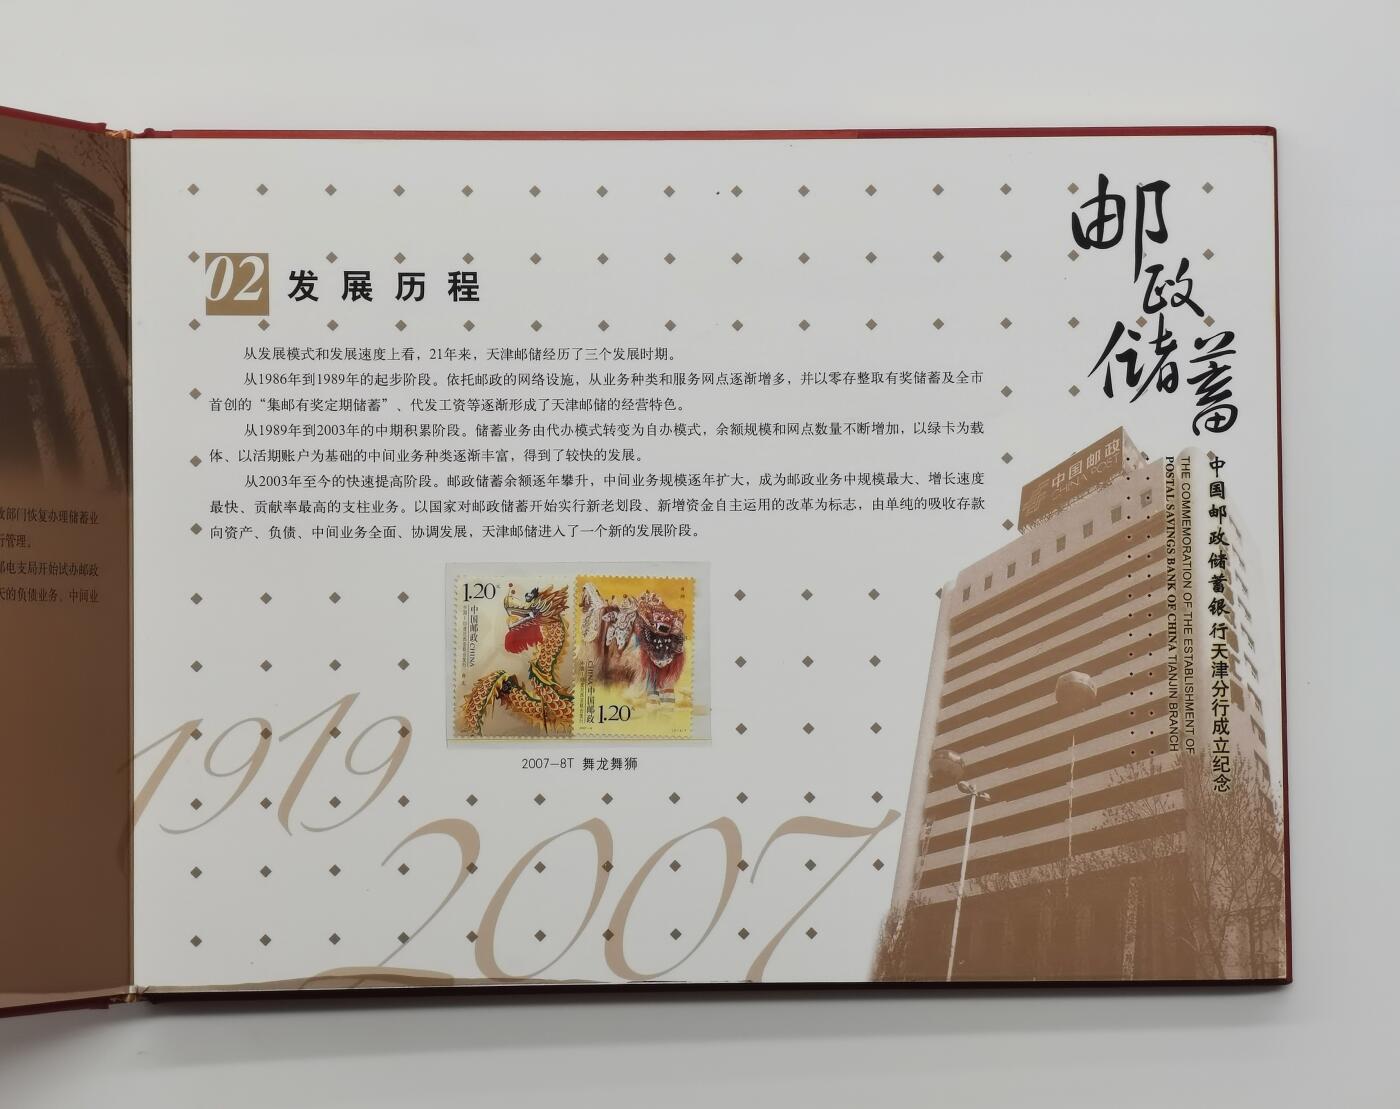 政部门恢复办理储蓄业
行管理。
邮电支局开始试办邮政
天的负债业务、中间业
02 发展历程
从发展模式和发展速度上看，21年来，天津邮储经历了三个发展时期。
从1986年到1989年的起步阶段。依托邮政的网络设施，从业务种类和服务网点逐渐增多，并以零存整取有奖储蓄及全市
首创的“集邮有奖定期储蓄”、代发工资等逐渐形成了天津邮储的经营特色。
从1989年到2003年的中期积累阶段。储蓄业务由代办模式转变为自办模式，余额规模和网点数量不断增加，以绿卡为载
体、以活期账户为基础的中间业务种类逐渐丰富，得到了较快的发展。
从2003年至今的快速提高阶段。邮政储蓄余额逐年攀升，中间业务规模逐年扩大，成为邮政业务中规模最大、增长速度
最快、贡献率最高的支柱业务。以国家对邮政储蓄开始实行新老划段、新增资金自主运用的改革为标志，由单纯的吸收存款
向资产、负债、中间业务全面、协调发展，天津邮储进入了一个新的发展阶段。
1.20元
中国邮政 CHINA
1.20元
中国邮政 CHINA
2007-8T 舞龙舞狮
1919
2007
邮政储蓄
中国邮政
CHINA POST
中国邮政储蓄银行天津分行成立纪念
THE COMMEMORATION OF THE ESTABLISHMENT OF
POSTAL SAVINGS BANK OF CHINA TIANJIN BRANCH